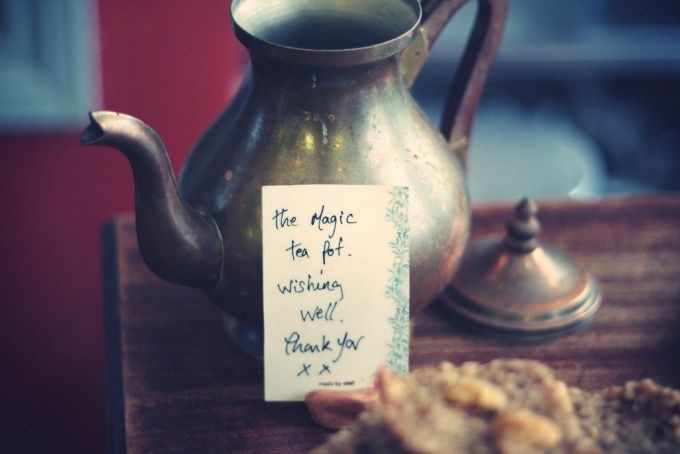 the Magic
tea Pot.
Wishing
Well.
Thank You
x x
made by